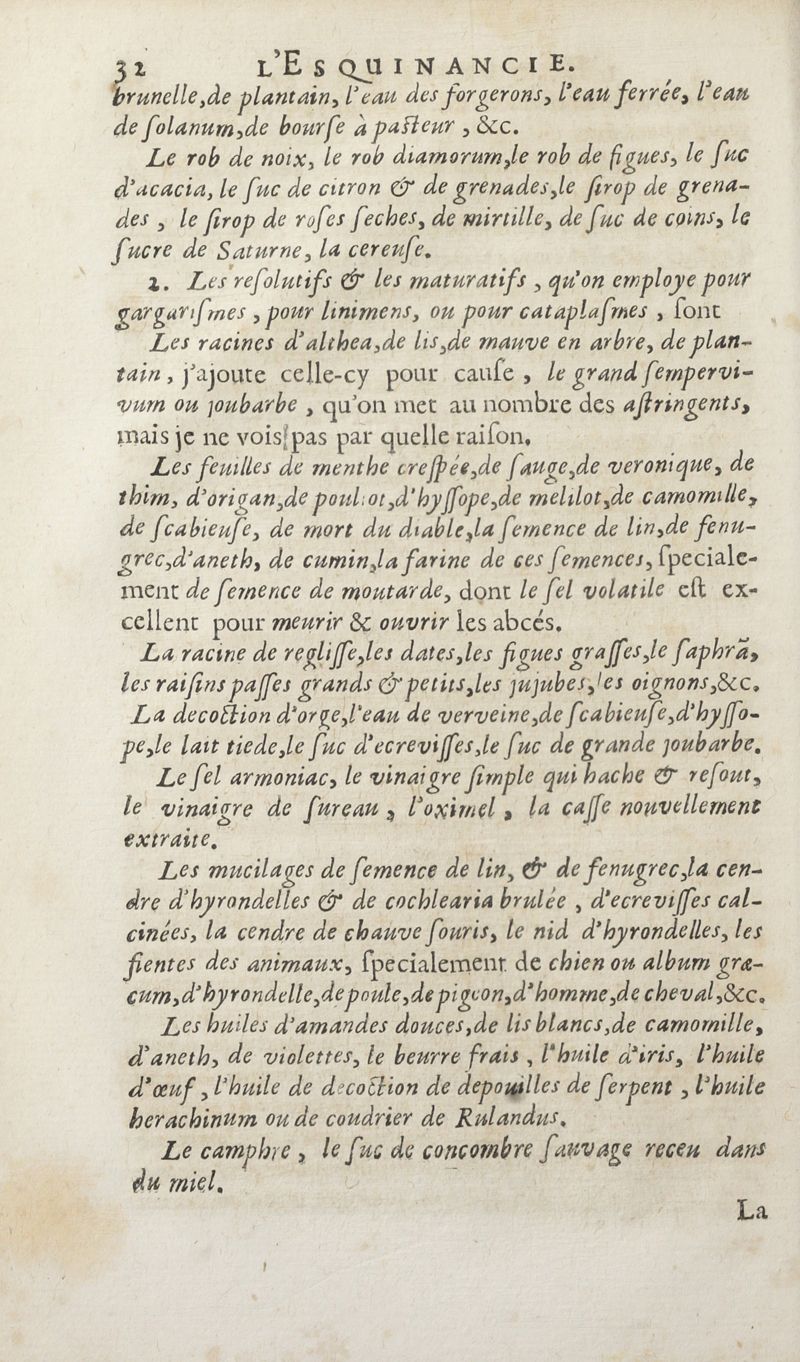 32 L'ESQUINANCIE.
brunelle, de plantain, l'eau des forgerons, l'eau ferrée, l'eau
de ſolanum, de bourſe à paſteur, &c.
Le rob de noix, le rob diamorum, le rob de figues, le ſuc
d'acacia, le ſuc de citron & de grenades, le ſirop de grena-
des, le ſirop de roſes ſeches, de mirtille, de ſuc de coins, le
ſucre de Saturne, la cereuſe.
2. Les reſolutifs & les maturatifs, qu'on employe pour
gargariſmes, pour linimens, ou pour cataplaſmes, ſont
Les racines d'althea, de lis, de mauve en arbre, de plan-
tain, j'ajoute celle-cy pour cauſe, le grand ſempervi-
vum ou joubarbe, qu'on met au nombre des aſtringents,
mais je ne vois pas par quelle raiſon.
Les feuilles de menthe creſpée, de ſauge, de veronique, de
thim, d'origan, de pouliot, d'hyſſope, de melilot, de camomille,
de ſcabieuſe, de mort du diable, la ſemence de lin, de fenu-
grec, d'aneth, de cumin, la farine de ces ſemences, ſpeciale-
ment de ſemence de moutarde, dont le ſel volatile eſt ex-
cellent pour meurir & ouvrir les abcés.
La racine de regliſſe, les dates, les figues graſſes, le ſaphrã,
les raiſins paſſes grands & petits, les jujubes, les oignons, &c.
La decoction d'orge, l'eau de verveine, de ſcabieuſe, d'hyſſo-
pe, le lait tiede, le ſuc d'ecreviſſes, le ſuc de grande joubarbe.
Le ſel armoniac, le vinaigre ſimple qui hache & reſout,
le vinaigre de ſureau, l'oximel, la caſſe nouvellement
extraite.
Les mucilages de ſemence de lin, & de fenugrec, la cen-
dre d'hyrondelles & de cochlearia brulée, d'ecreviſſes cal-
cinées, la cendre de chauve ſouris, le nid d'hyrondelles, les
fientes des animaux, ſpecialement de chien ou album græ-
cum, d'hyrondelle, de poule, de pigeon, d'homme, de cheval, &c.
Les huiles d'amandes douces, de lis blancs, de camomille,
d'aneth, de violettes, le beurre frais, l'huile d'iris, l'huile
d'œuf, l'huile de decoction de depouilles de ſerpent, l'huile
herachinum ou de coudrier de Rulandus.
Le camphre, le ſuc de concombre ſauvage receu dans
du miel.
La